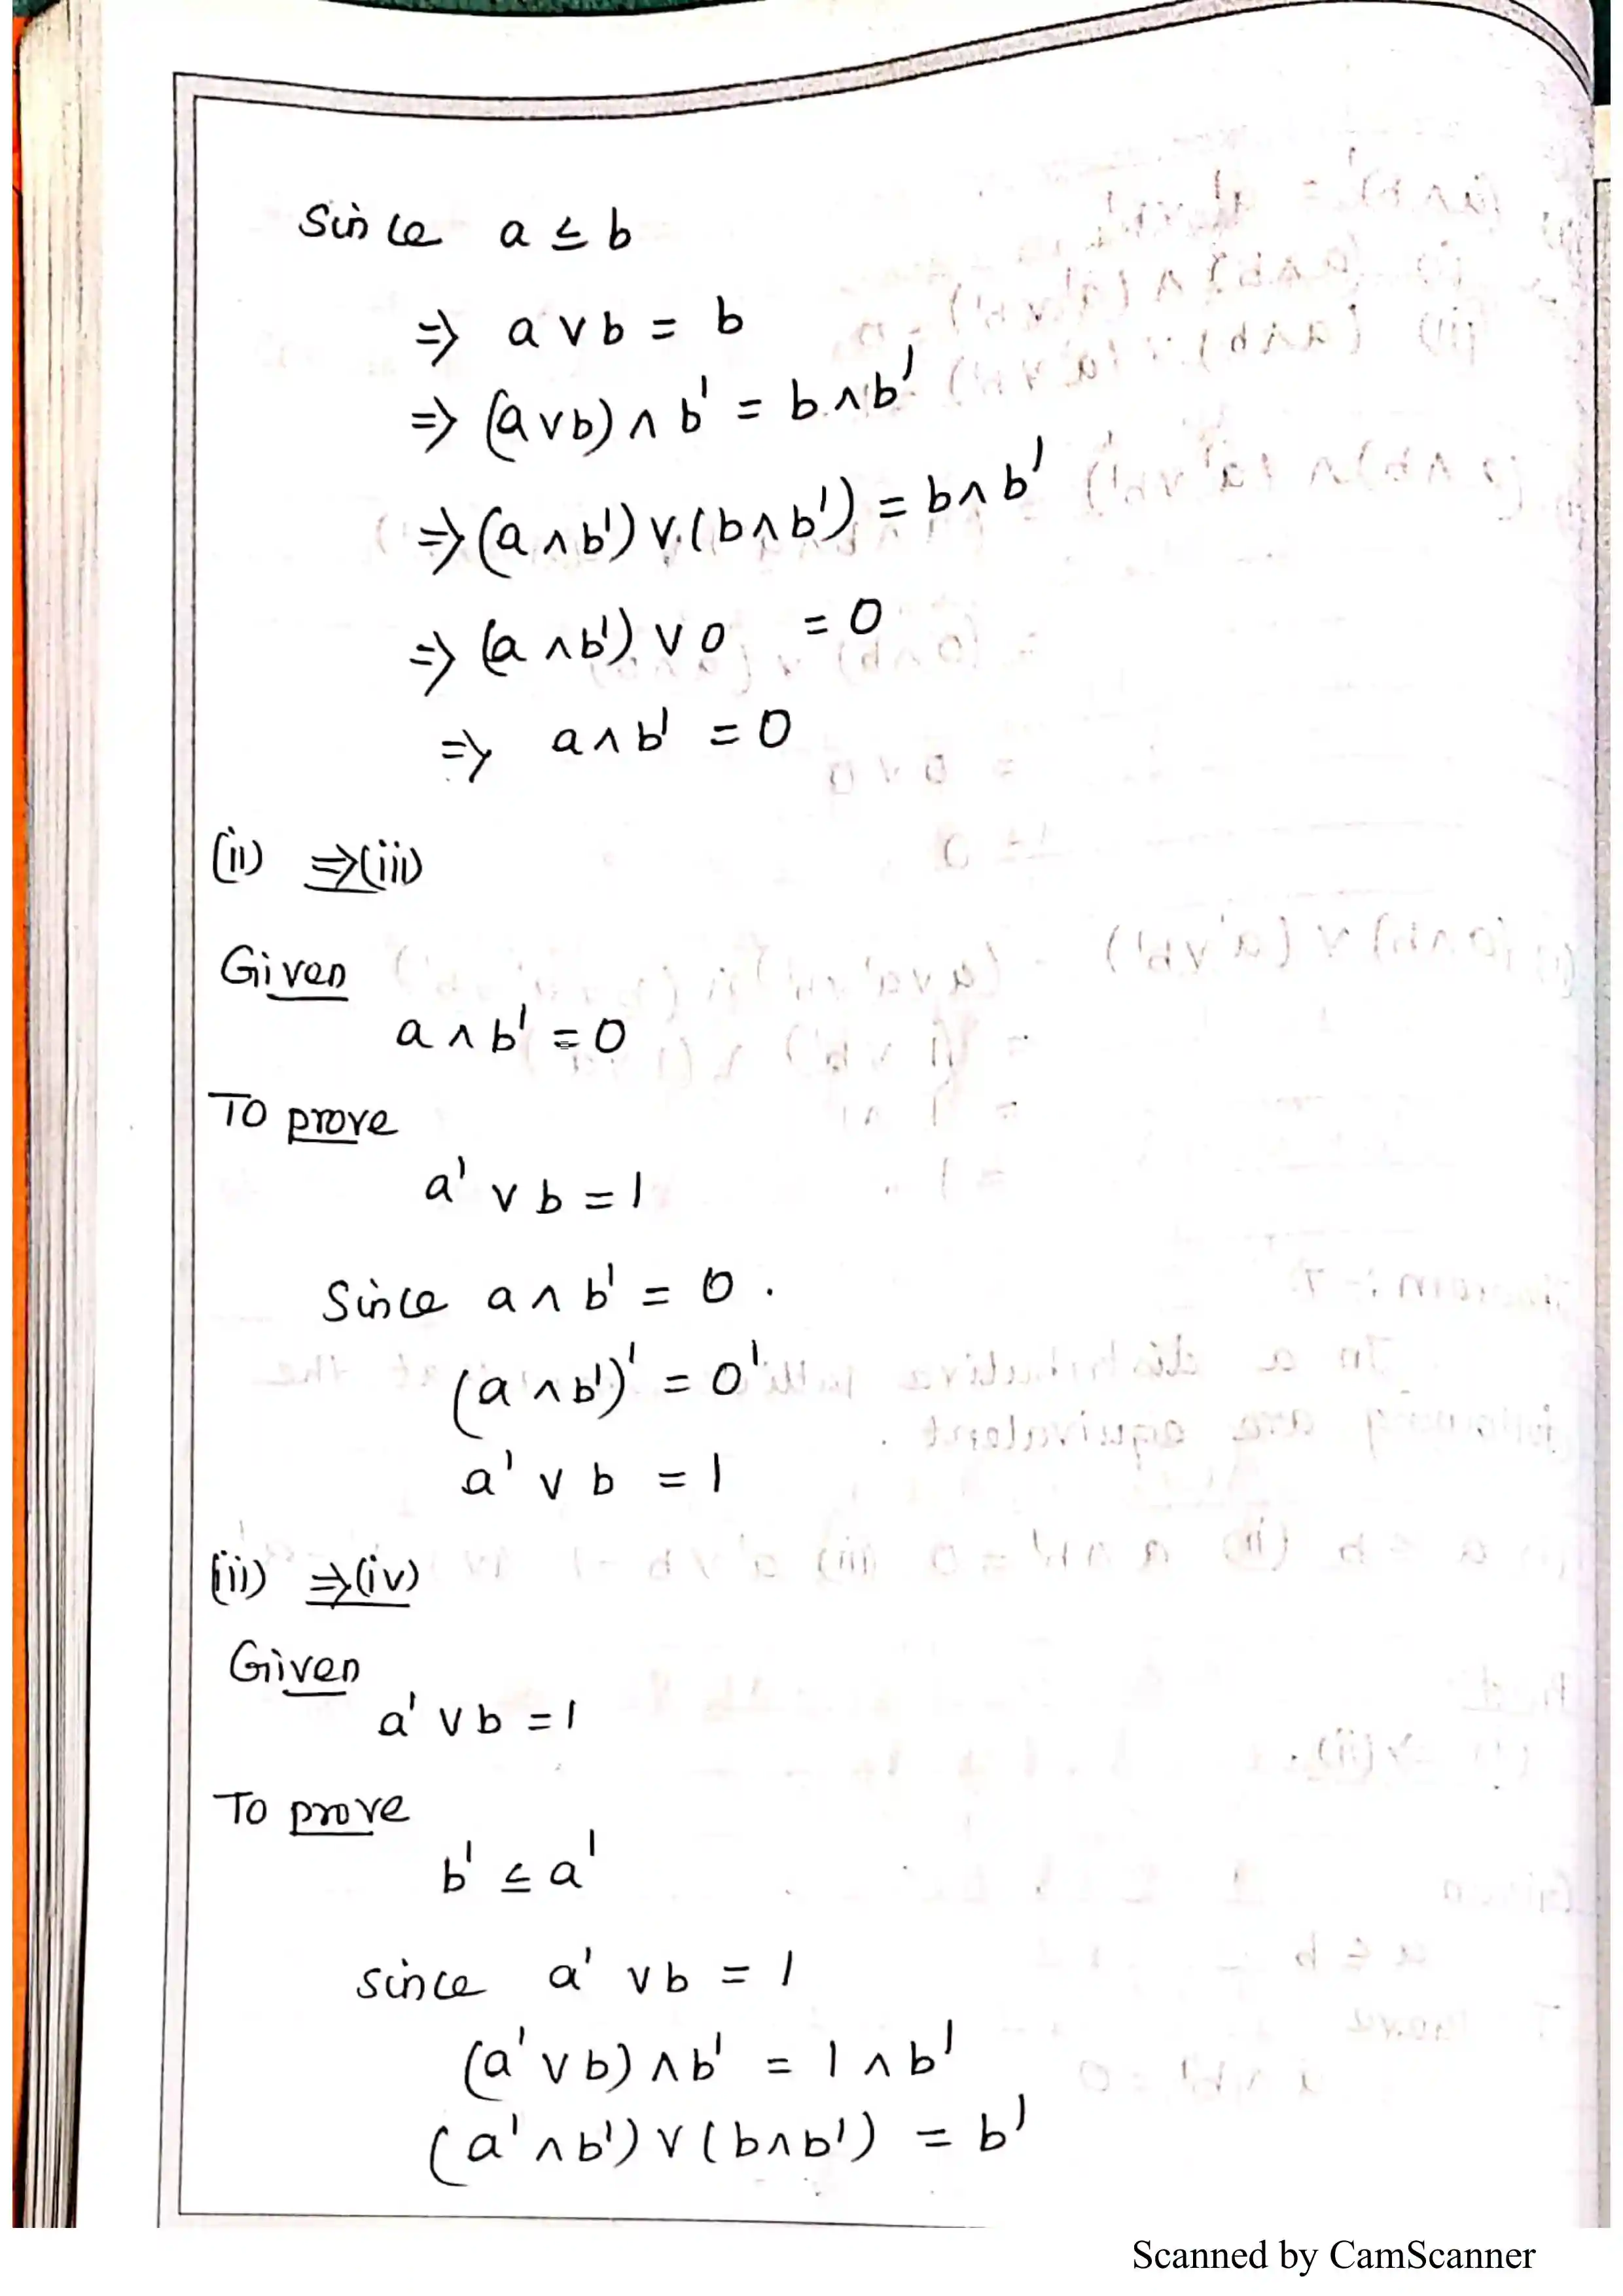 Since a ≤ b
⇒ a ∨ b = b
⇒ (a ∨ b) ∧ b' = b ∧ b'
⇒ (a ∧ b') ∨ (b ∧ b') = b ∧ b'
⇒ (a ∧ b') ∨ 0 = 0
⇒ a ∧ b' = 0
(ii) ⇒ (iii)
Given
a ∧ b' = 0
To prove
a' ∨ b = 1
Since a ∧ b' = 0.
(a ∧ b')' = 0'
a' ∨ b = 1
(iii) ⇒ (iv)
Given
a' ∨ b = 1
To prove
b' ≤ a'
since a' ∨ b = 1
(a' ∨ b) ∧ b' = 1 ∧ b'
(a' ∧ b') ∨ (b ∧ b') = b'
Scanned by CamScanner